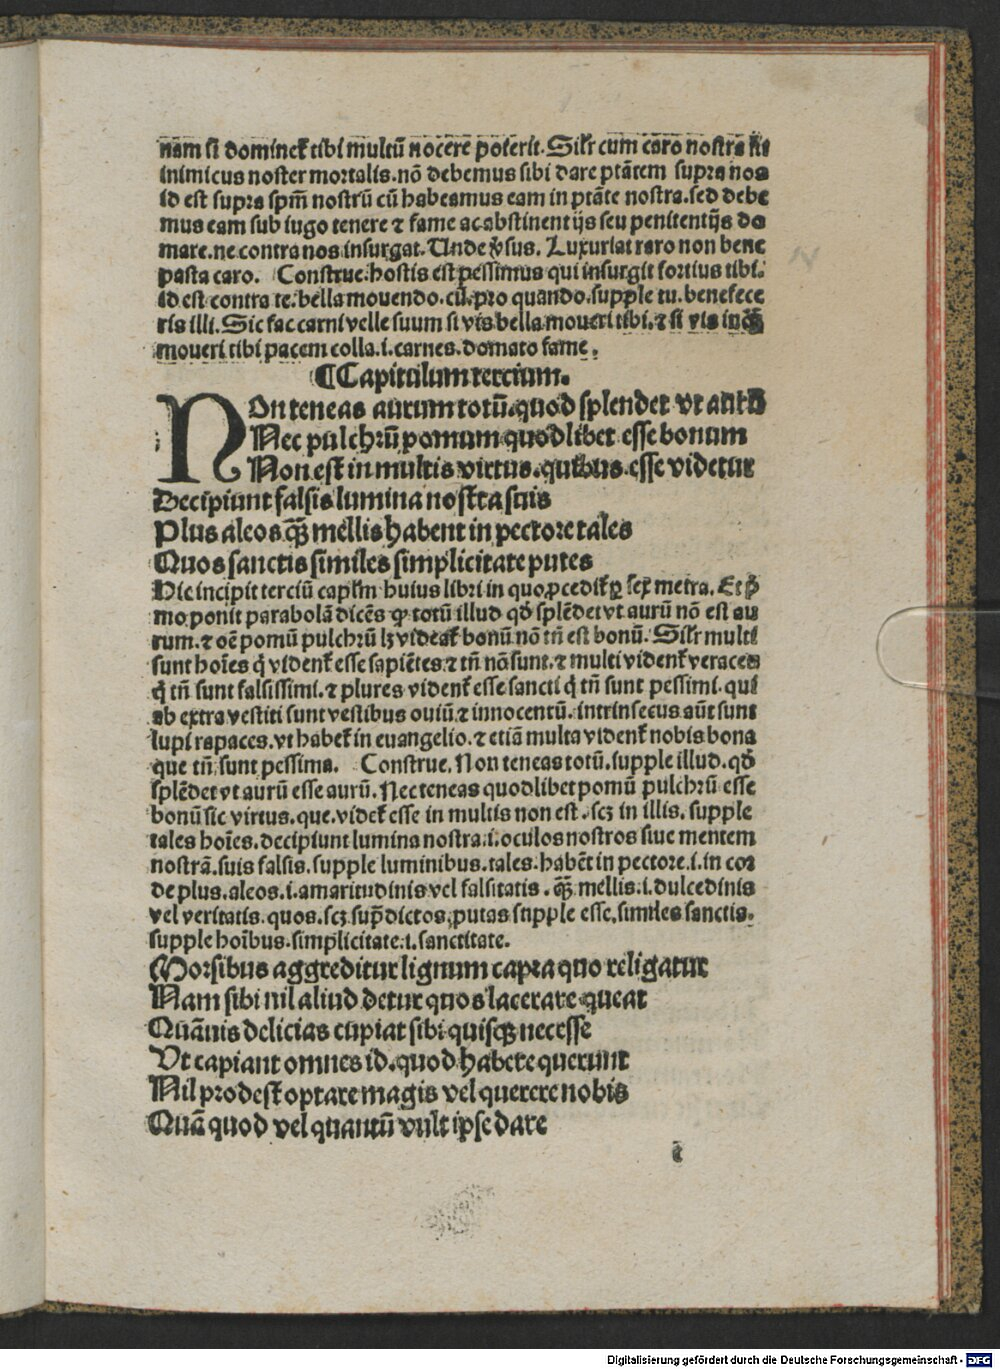 nam si dominet᷑ tibi multū nocere poterit. Silr̄ cum caro nostra sit
inimicus noster mortalis. nō debemus sibi dare ptātem supra nos
id est supra spm̄ nostrū cū habeamus eam in ptāte nostra. sed debe
mus eam sub iugo tenere ⁊ fame ac abstinentijs seu penitentijs do
mare. ne contra nos insurgat. Unde v̓sus. Luxuriat raro non bene
pasta caro. Construe. hostis est pessimus qui insurgit fortius tibi.
id est contra te. bella mouendo. cū. pro quando. supple tu. benefece
ris illi. Sic fac carni velle suum si vis bella moueri tibi. ⁊ si vis inq̄ꝫ
moueri tibi pacem colla. i. carnes. domato fame.
¶Capitulum tercium.
NOn teneas aurum totū. quod splendet vt aurū
Nec pulchrū pomum quodlibet esse bonum
Non est in multis virtus. quibus esse videtur
Decipiunt falsis lumina nostra suis
Plus aleos q̄ꝫ mellis habent in pectore tales
Quos sanctis similes simplicitate putes
Hic incipit terciū caplm̄ huius libri in quo ꝓcedit᷑ ꝑ sex metra. Et p̓
mo ponit parabolā dicēs ꝙ totū illud qd̓ splēdet vt aurū nō est au
rum. ⁊ oē pomū pulchrū lꝫ videat᷑ bonū nō tn̄ est bonū. Silr̄ multi
sunt hoīes q̓ vident᷑ esse sapiētes. ⁊ tn̄ nō sunt. ⁊ multi vident᷑ veraces
q̓ tn̄ sunt falsissimi. ⁊ plures vident᷑ esse sancti q̓ tn̄ sunt pessimi. qui
ab extra vestiti sunt vestibus ouiū. ⁊ innocentū. intrinsecus aūt sunt
lupi rapaces. vt habet᷑ in euangelio. ⁊ etiā multa vident᷑ nobis bona
que tn̄ sunt pessima. Construe. Non teneas totū. supple illud. qd̓
splēdet vt aurū esse aurū. Nec teneas quodlibet pomū pulchrū esse
bonū sic virtus. que. videt᷑ esse in multis non est. scꝫ in illis. supple
tales hoīes. decipiunt lumina nostra. i. oculos nostros siue mentem
nostrā. suis falsis. supple luminibus. tales. habēt in pectore. i. in cor
de plus. aleos. i. amaritudinis vel falsitatis. q̄ꝫ mellis. i. dulcedinis
vel veritatis. quos. scꝫ sup̄dictos. putas supple esse. similes sanctis.
supple hoībus. simplicitate. i. sanctitate.
Morsibus aggreditur lignum capra quo religatur
Nam sibi nil aliud detur quos lacerare queat
Quāuis delicias cupiat sibi quisqꝫ necesse
Vt capiant omnes id. quod habere querunt
Nil prodest optare magis vel querere nobis
Quā quod vel quantū vult ipse dare
c
Digitalisierung gefördert durch die Deutsche Forschungsgemeinschaft - DFG